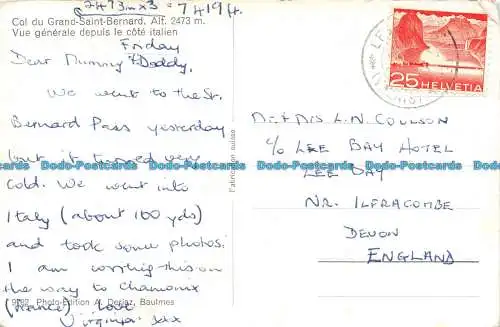 2473m x 3 = 7419 ft.
Col du Grand-Saint-Bernard. Alt. 2473 m.
Vue générale depuis le côté italien
Friday
Dear Mummy & Daddy,
We went to the St.
Bernard Pass yesterday
but it turned very
cold. We went into
Italy (about 100 yds)
and took some photos.
I am writing this on
the way to Chamonix
(France) love
Virginia xxx
9162 Photo-Edition A. Deriaz, Baulmes
Fabrication suisse
25 HELVETIA
Mr & Mrs L.N. COULSON
c/o LEE BAY HOTEL
LEE BAY
NR. ILFRACOMBE
DEVON
ENGLAND
Dodo-Postcards Dodo-Postcards Dodo-Postcards Dodo-Postcards Dodo-Postcards